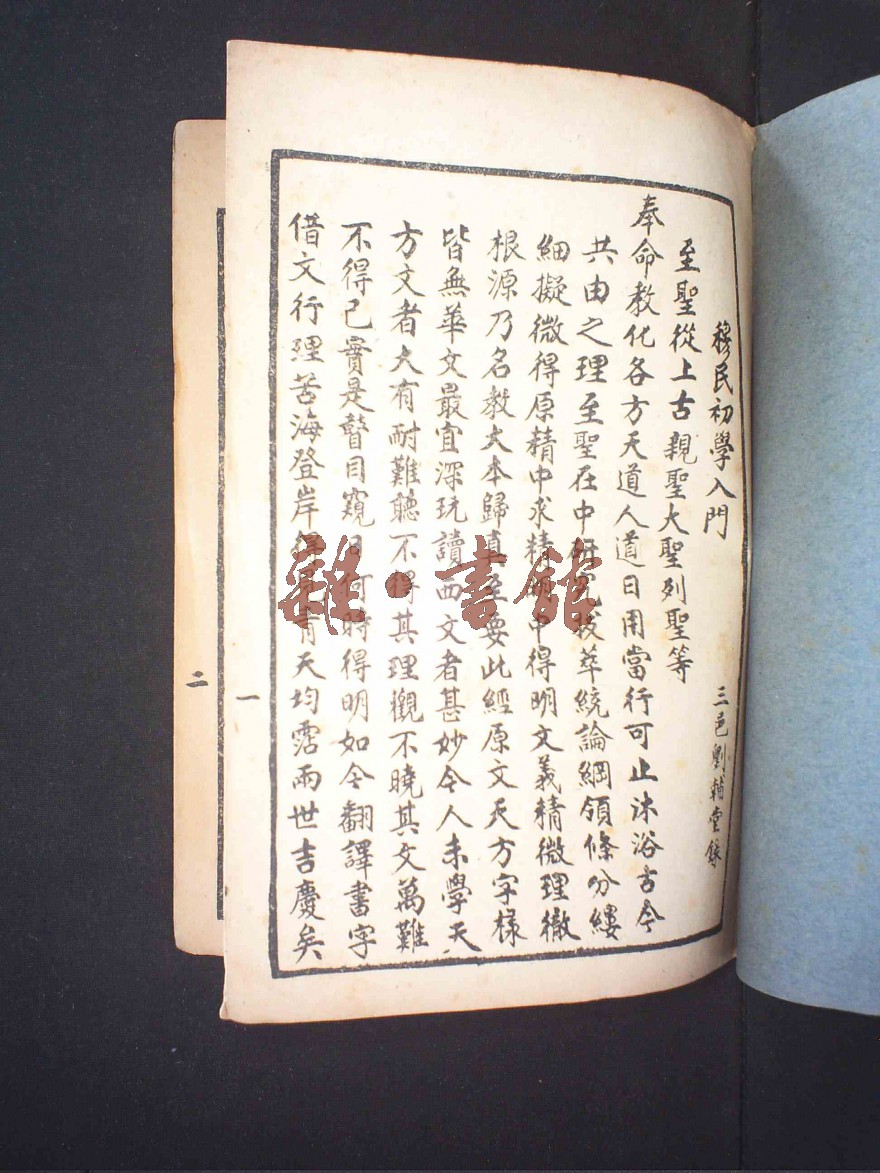 穆民初學入門
三邑劉輔堂錄
至聖從上古親聖大聖列聖等
奉命教化各方天道人道日用當行可止沐浴古今
共由之理至聖在中研究拔萃統論綱領條分縷
細擬微得原精中求精明中得明文義精微理徹
根源乃名教大本歸真至要此經原文天方字樣
皆無華文最宜深玩讀西文者甚妙今人未學天
方文者大有耐難聽不得其理觀不曉其文萬難
不得已實是瞽目窺日何時得明如今翻譯書字
借文行理苦海登岸得育天均霑兩世吉慶矣
一
二
雜·書館